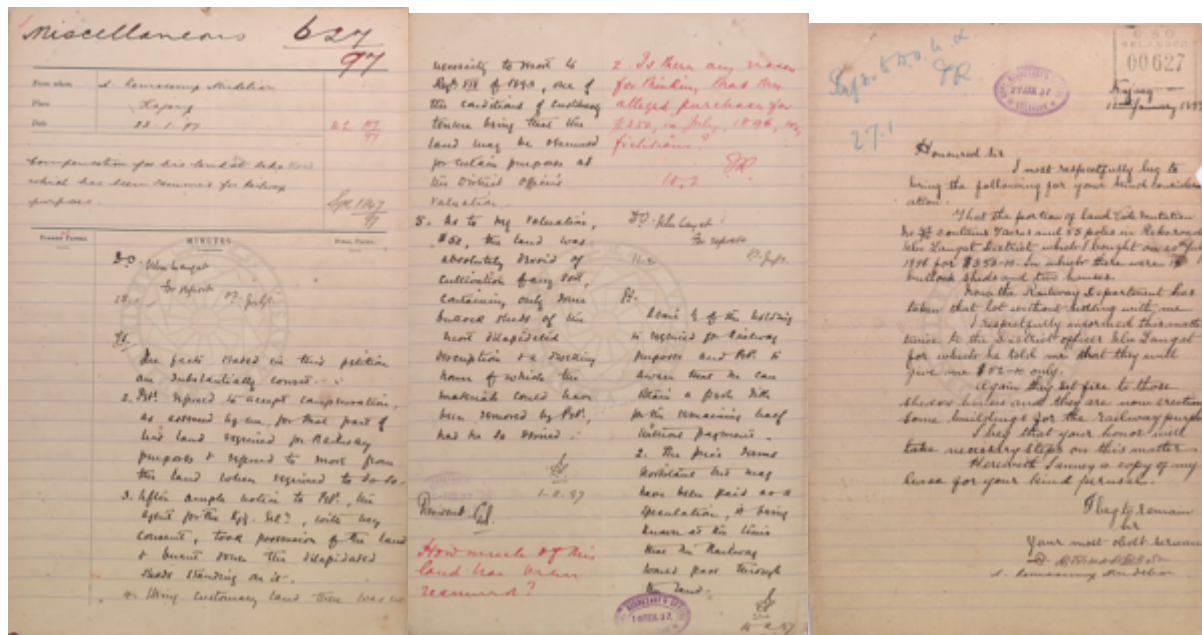 Miscellaneous 627/97
From whom S. Ramasamy Mudeliar
Place Kajang
Date 22.1.97
Compensation for his land at Reko Road
which has been resumed for Railway
purposes.
MINUTES.
D.O. Ulu Langat
For report
The facts stated in this petition
are substantially correct.
2. Petr. refused to accept compensation,
as assessed by me, for that part of
his land required for Railway
purposes & refused to move from
the land when required to do so.
3. After ample notice to Petr., the
Agent for the , with my
consent, took possession of the land
& burnt down the dilapidated
sheds standing on it.
4. Being customary land there was no
necessity to resort to
Regn XIX of 1890, one of
the conditions of customary
tenure being that the
land may be resumed
for certain purposes at
the District Officer's
valuation.
5. As to my valuation,
$52, the land was
absolutely devoid of
cultivation of any sort,
containing only some
bullock sheds of the
most dilapidated
description & a dwelling
house of which the
materials could have
been removed by Petr.,
had he so desired.
1.2.97
Resident Sel.
How much of this
land has been
resumed?
2. Is there any reason
for thinking that the
alleged purchase for
$350, in July, 1896, was
fictitious?
D.O. Ulu Langat
For report
R.
About ½ of the holding
is required for Railway
purposes and Petr. is
aware that he can
obtain a fresh title
for the remaining half
without payment.
2. The price seems
exorbitant but may
have been paid as a
speculation, it being
known at the time
that the Railway
would pass through
the land.
SECRETARY'S OFFICE
G S O
SELANGOR
00627
27 JAN. 97
27.1
Kajang
January 1897
Honoured Sir
I most respectfully beg to
bring the following for your kind consider
ation.
That the portion of land
contains acres and 35 poles in Reko road
Ulu Langat District which I bought on
1896 for $350-00. In which there were
bullock sheds and two houses.
Now the Railway Department has
taken that lot without telling with me.
I respectfully informed this matter
twice to the District officer Ulu Langat
for which he told me that they will
give me $52-00 only.
Again they set fire to those
sheds & houses and they are now erecting
some buildings for the railway purpose
I beg that your honor will
take necessary steps on this matter.
Herewith I annex a copy of my
lease for your kind perusal.
I beg to remain
Sir
Your most obdt servant
S. Ramasamy Mudeliar